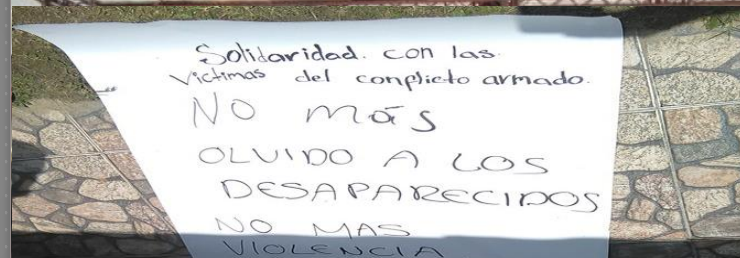 Solidaridad. con las.
victimas del conflicto armado.
NO más
OLVIDO A LOS
DESAPARECIDOS
NO MAS
VIOLENCIA